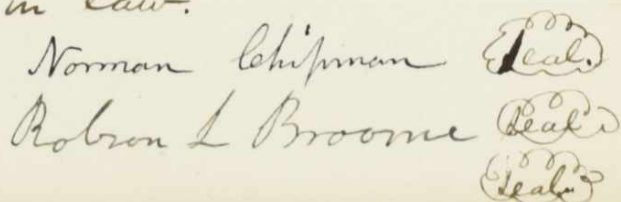 in law.
Norman Chipman Seal.
Robson L Broome Seal.
Seal.